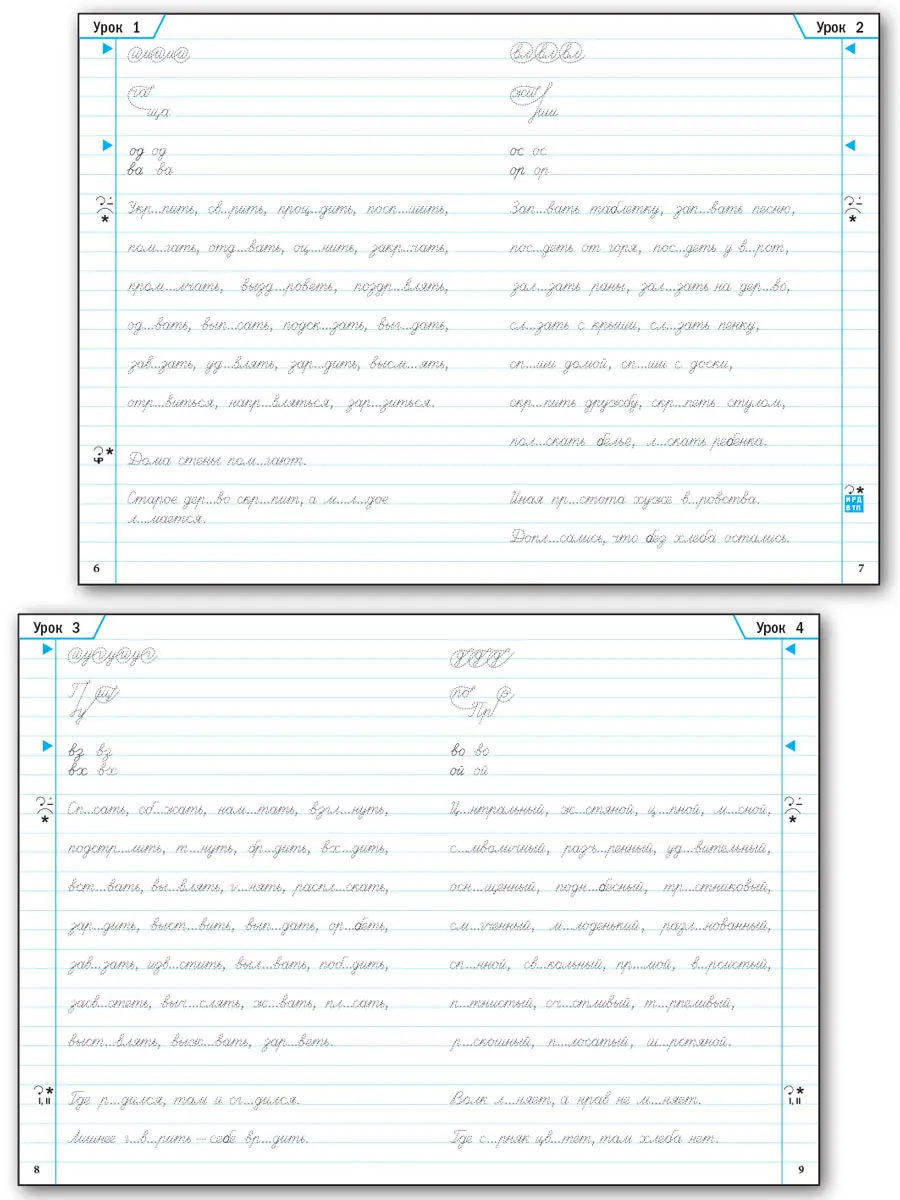 Урок 1
шишиш
ча
ща
од од
ва ва
Укр...пить, св...рить, прощ...дить, посп...шить,
пом...гать, отд...вать, оц...нить, закр...чать,
пром...лчать, вызд...роветь, поздр...влять,
од...вать, вып...сать, подск...зать, выг...дать,
зав...зать, уд...влять, зар...дить, высм...ять,
отр...виться, напр...вляться, зар...зиться.
Дома стены пом...гают.
Старое дер...во скр...пит, а м...л...дое
л...мается.
6
Урок 2
вл вл вл
жи
ши
ос ос
ор ор
Зап...вать таблетку, зап...вать песню,
пос...деть от горя, пос...деть у в...рот,
зал...зать раны, зал...зать на дер...во,
сл...зать с крыши, сл...зать пенку,
сп...ши домой, сп...ши с доски,
скр...пить дружбу, скр...петь стулом,
пол...скать белье, л...скать ребенка.
Иная пр...стота хуже в...ровства.
Допл...сались, что без хлеба остались.
И Р Д
В Т П
7
Урок 3
П щ
у
вз вз
вх вх
Сп...сать, сб...жать, нам...тать, взгл...нуть,
подстр...лить, т...нуть, бр...дить, вх...дить,
вст...вать, вы...влять, г...нять, распл...скать,
зар...дить, выст...вить, вып...дать, ор...беть,
зав...зать, изв...стить, выл...вать, поб...дить,
засв...стеть, выч...слять, ж...вать, пл...сать,
выст...влять, выж...вать, зар...веть.
I, II
Где р...дился, там и сг...дился.
Лишнее г...в...рить – себе вр...дить.
8
Урок 4
по о
Пр
во во
ой ой
Ц...нтральный, ж...стяной, ц...пной, м...сной,
с...мволичный, разъ...ренный, уд...вительный,
осн...щенный, подн...бесный, тр...стниковый,
см...гченный, м...лоденький, разл...нованный,
сп...нной, св...кольный, пр...мой, в...рсистый,
п...тнистый, сч...стливый, т...рпеливый,
р...скошный, п...лосатый, ш...рстяной.
I, II
Волк л...няет, а нрав не м...няет.
Где с...рняк цв...тет, там хлеба нет.
9